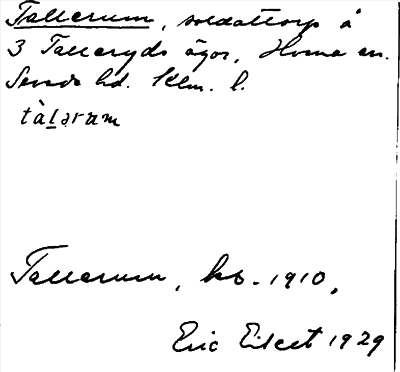 Tallerum, soldattorp å
3 Talleryds ägor, Horna sn.
Sevede hd. Klm. l.
tàlərum
Tallerum, kb. 1910,
Eric Elseet 1929